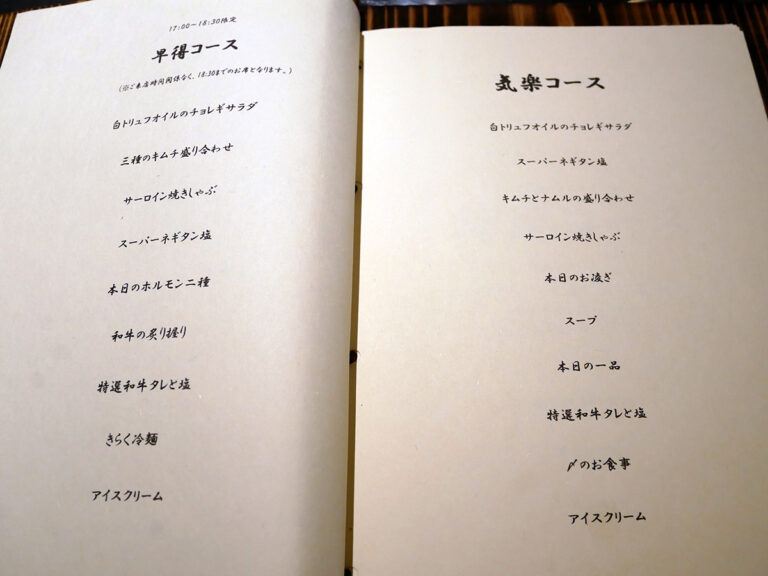 17:00〜18:30限定
早得コース
(※ご来店時間関係なく、18:30までのお席となります。)
白トリュフオイルのチョレギサラダ
三種のキムチ盛り合わせ
サーロイン焼きしゃぶ
スーパーネギタン塩
本日のホルモン二種
和牛の炙り握り
特選和牛タレと塩
きらく冷麺
アイスクリーム
気楽コース
白トリュフオイルのチョレギサラダ
スーパーネギタン塩
キムチとナムルの盛り合わせ
サーロイン焼きしゃぶ
本日のお凌ぎ
スープ
本日の一品
特選和牛タレと塩
〆のお食事
アイスクリーム